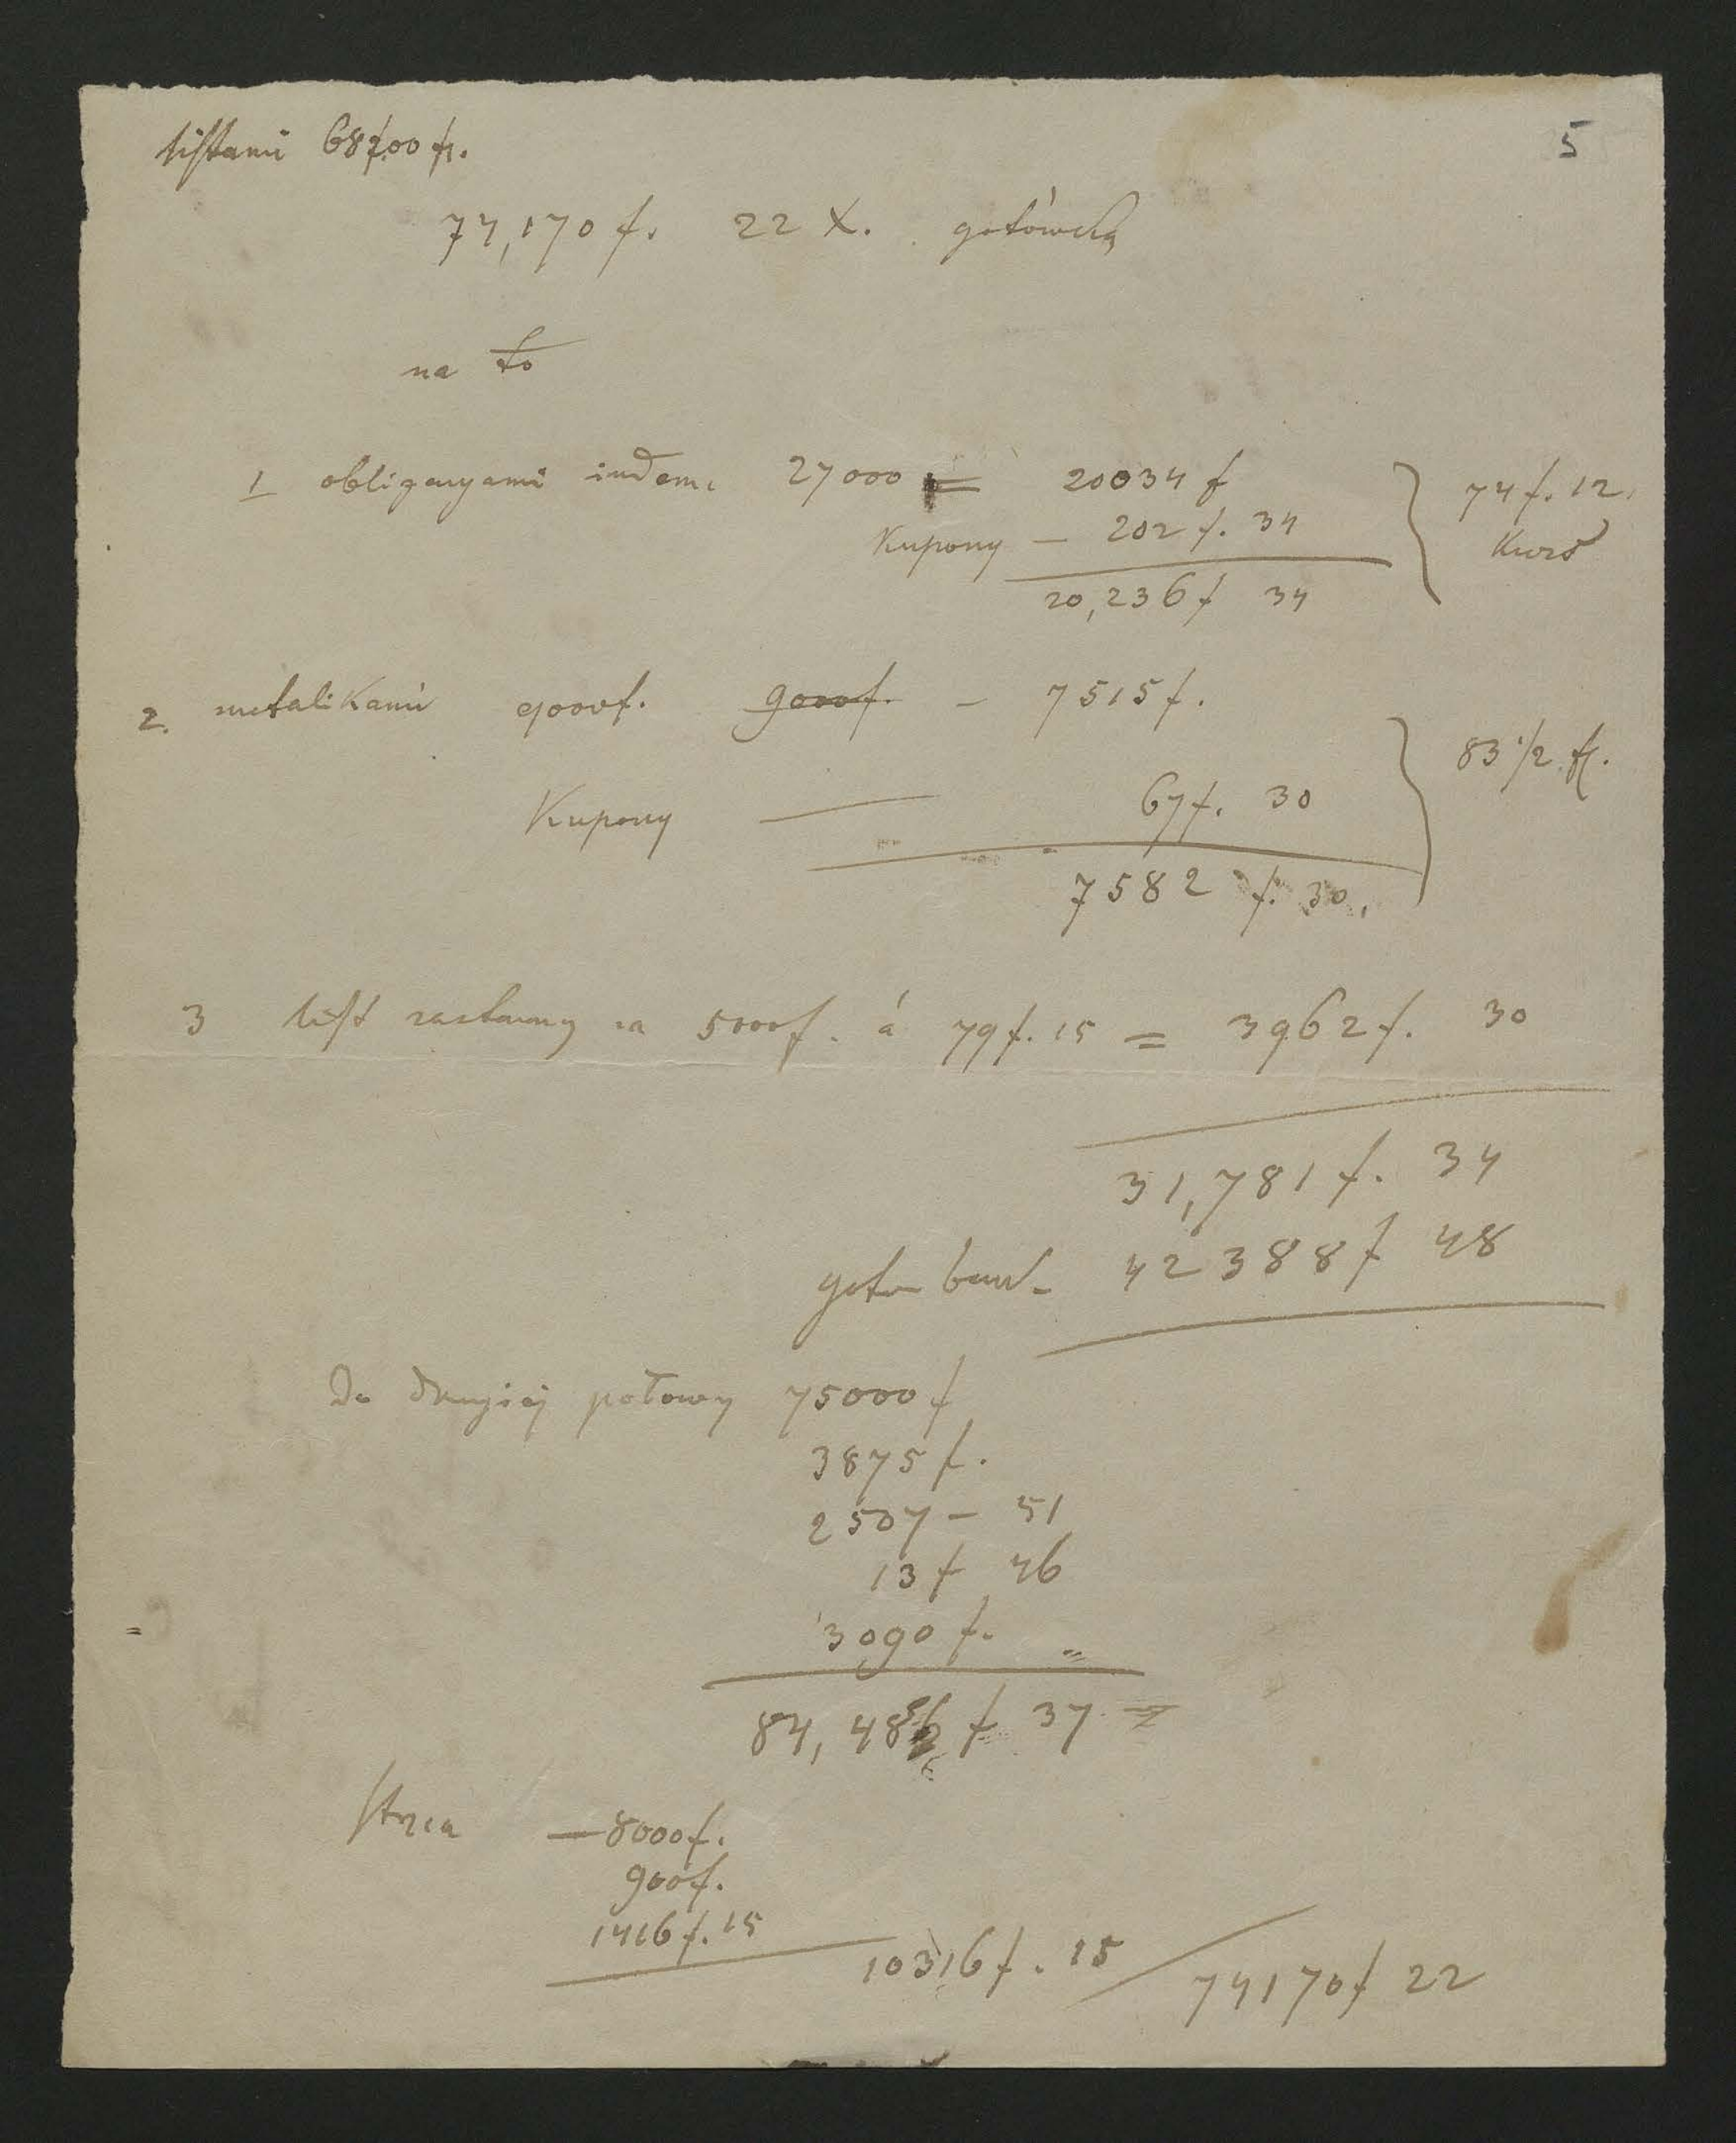 listami 68700 fr.
5
74,170 f. 22 X. gotówką
na to
1 obligacyami indem. 27000 = 20034 f
Kupony — 202 f. 34
20,236 f 34
74 f. 12.
Kurs
2. metalikami 9000f. 9000f. — 7515 f.
Kupony — 67 f. 30
7582 f. 30.
83 1/2 fl.
3 list zastawny na 5000f. á 79 f. 15 = 3962 f. 30
31,781 f. 34
42388 f 48
Do drugiej połowy 75000 f
3875 f.
2507 — 51
13 f 46
3090 f. =
84,486 f 37
— 8000 f.
900 f.
1416 f. 15
10316 f. 15 / 74170 f 22